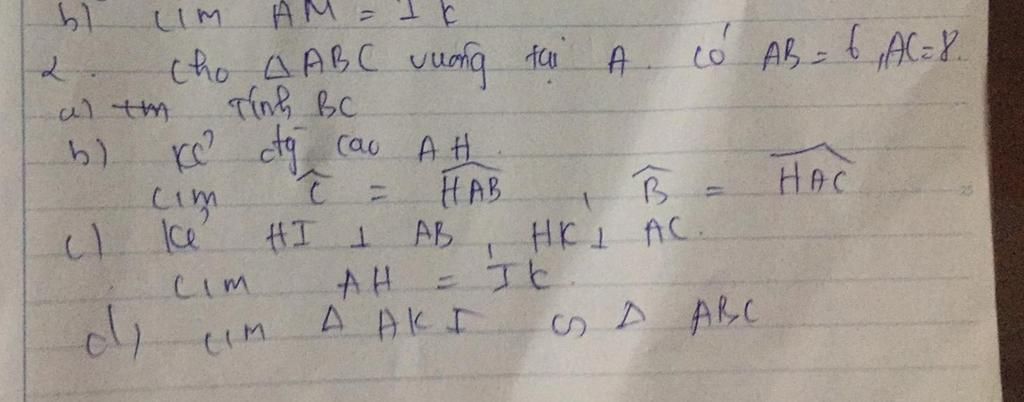 b) CIM AM = IK
2. Cho Δ ABC vuông tại A. có AB = 6, AC=8.
a) Tính BC
b) Kẻ đg cao AH
CIM Ĉ = \widehat{HAB}, B̂ = \widehat{HAC}
c) Kẻ HI ⊥ AB, HK ⊥ AC.
CIM AH = IK.
d) CIM Δ AKI ∽ Δ ABC